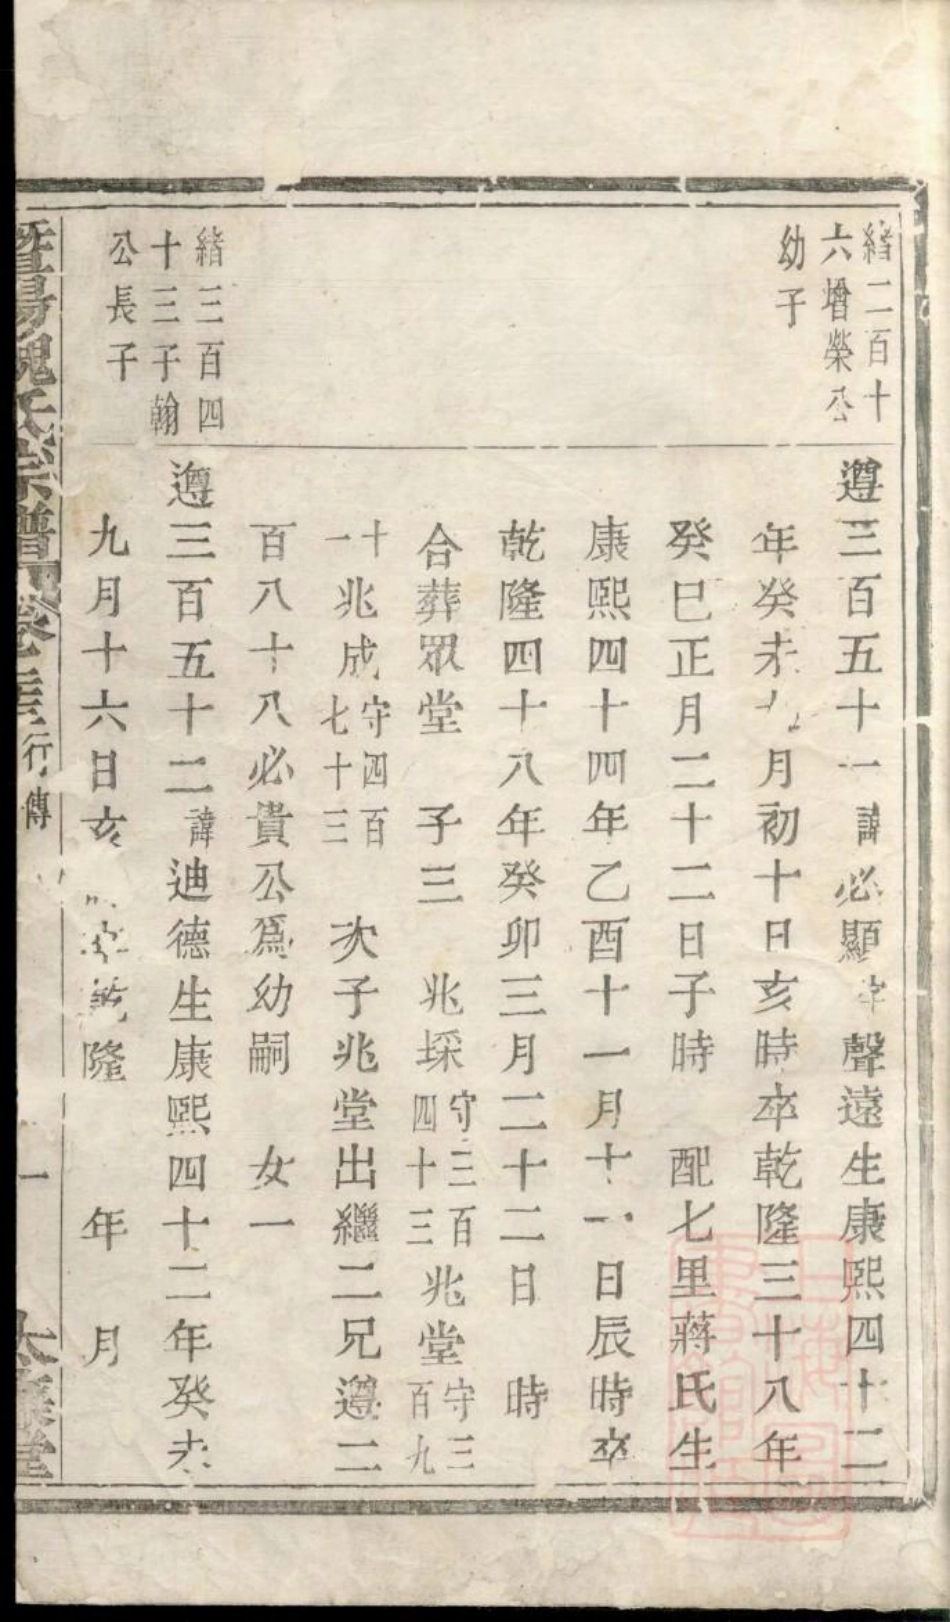 緒二百十
六增榮公
幼子
遵三百五十一諱必顯字聲遠生康熙四十二
年癸未九月初十日亥時卒乾隆三十八年
癸巳正月二十二日子時 配七里蔣氏生
康熙四十四年乙酉十一月十一日辰時卒
乾隆四十八年癸卯三月二十二日 時
合葬眾堂 子三 兆埰守三百四十三兆堂守三百九
十一兆成守四百七十三 次子兆堂出繼二兄遵二
百八十八必貴公爲幼嗣 女一
緒三百四
十三子翰
公長子
遵三百五十二諱迪德生康熙四十二年癸未
九月十六日亥 乾隆 年 月
暨陽魏氏宗譜 卷 行傳 一